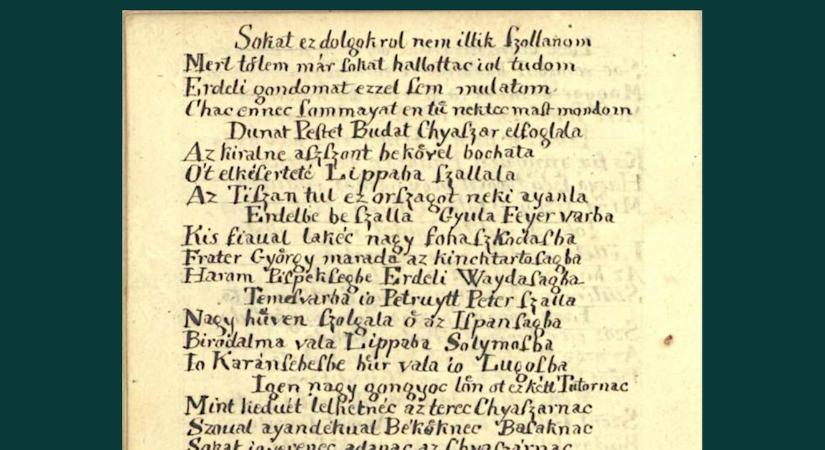 Sokat ez dolgokrol nem illik ſzollanom
Mert tőlem már ſokat hallottac iol tudom
Erdeli gondomat ezzel ſem mulatom
Chac ennec ſommayat en tű nektec maſt mondom
Dunat Peſtet Budat Chyaſzar elfoglala
Az kiralne aſzſzont bekövel bochata
Őt elkéſerteté Lippaba ſzallala
Az Tiſzan tul ez orſzagot neki ayanla
Erdelbe be ſzalla Gyula Feyer varba
Kis fiaual lakéc nagy fohaſzkodaſba
Frater György marada az kinchtartoſagba
Haram Piſpekſegbe Erdeli Waydaſagba
Temeſvarba io Petruytt Peter ſzalla
Nagy hűven ſzolgala ő az Iſpanſagba
Birodalma vala Lippaba Solymoſba
Io Karánſebeſbe hűr vala io Lugoſba
Igen nagy gongyoc lőn ot ez kétt Tutornac
Mint keduét lelhetnéc az terec Chyaſzarnac
Szoual ayandékual Békőknec Baſaknac
Sokat igyerenec adanac az Chyaſzárnac